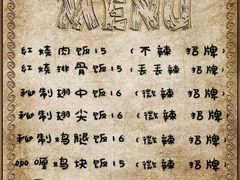 MENU
红烧肉饭15(不辣 招牌)
红烧排骨饭15(丢丢辣 招牌)
秘制翅中饭16(微辣 招牌)
秘制翅尖饭16(微辣 招牌)
秘制鸡腿饭16(微辣 招牌)
咖喱鸡块饭15(微辣 招牌)